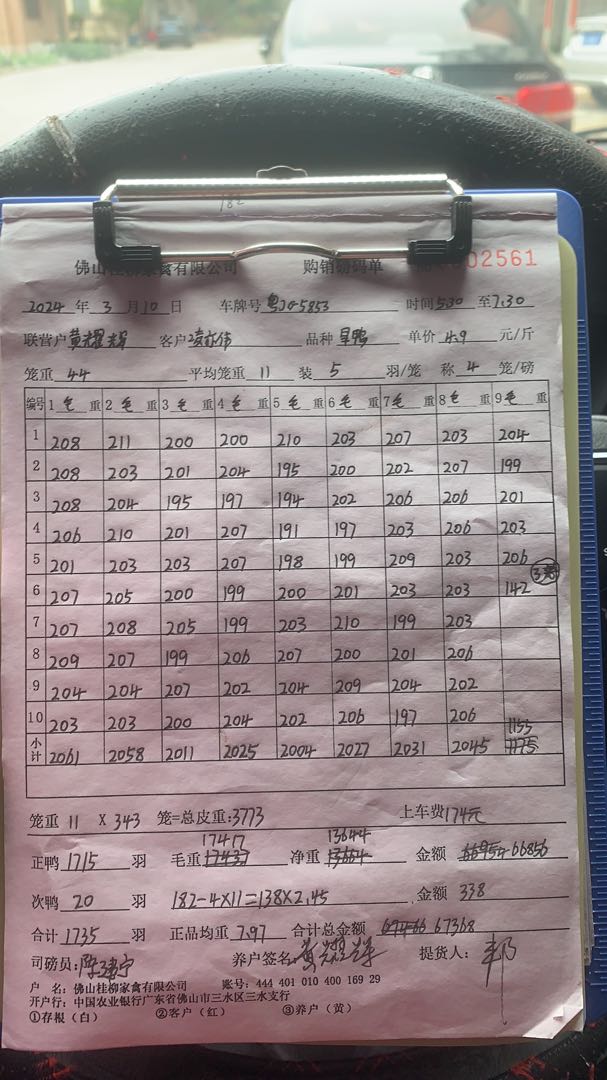 182
佛山桂柳家禽有限公司 购销磅码单 002561
2024 年 3 月 10 日 车牌号 粤JG5853 时间 530 至 7:30
联营户 黄耀辉 客户 凌亦伟 品种 旱鸭 单价 4.9 元/斤
笼重 44 平均笼重 11 装 5 羽/笼 称 4 笼/磅
编号 1 毛 重 2 毛 重 3 毛 重 4 毛 重 5 毛 重 6 毛 重 7 毛 重 8 毛 重 9 毛 重
1 208 211 200 200 210 203 207 203 204
2 208 203 201 204 195 200 202 207 199
3 208 204 195 197 194 202 206 206 201
4 206 210 201 207 191 197 203 206 203
5 201 203 203 207 198 199 209 203 206
6 207 205 200 199 200 201 203 203 142
7 207 208 205 199 203 210 199 203
8 209 207 199 206 207 200 201 206
9 204 204 207 202 204 209 204 202
10 203 203 200 204 202 206 197 206 1155
小计 2061 2058 2011 2025 2004 2027 2031 2045 1175
笼重 11 X 343 笼=总皮重:3773 上车费174元
17417 13644
正鸭 1715 羽 毛重 17437 净重 13664 金额 66954 66856
次鸭 20 羽 182-4×11=138×2.45 金额 338
合计 1735 羽 正品均重 7.97 合计总金额 67368
司磅员: 养户签名: 黄耀辉 提货人: 邦
户 名: 佛山桂柳家禽有限公司 账号: 444 401 010 400 169 29
开户行: 中国农业银行广东省佛山市三水区三水支行
①存根(白) ②客户(红) ③养户(黄)